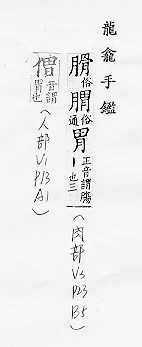 龍龕手鑑
俗俗通胃正音謂腸丨也三
(肉部V3 P23 B5)
音謂胃也
(人部V1 P13 A1)